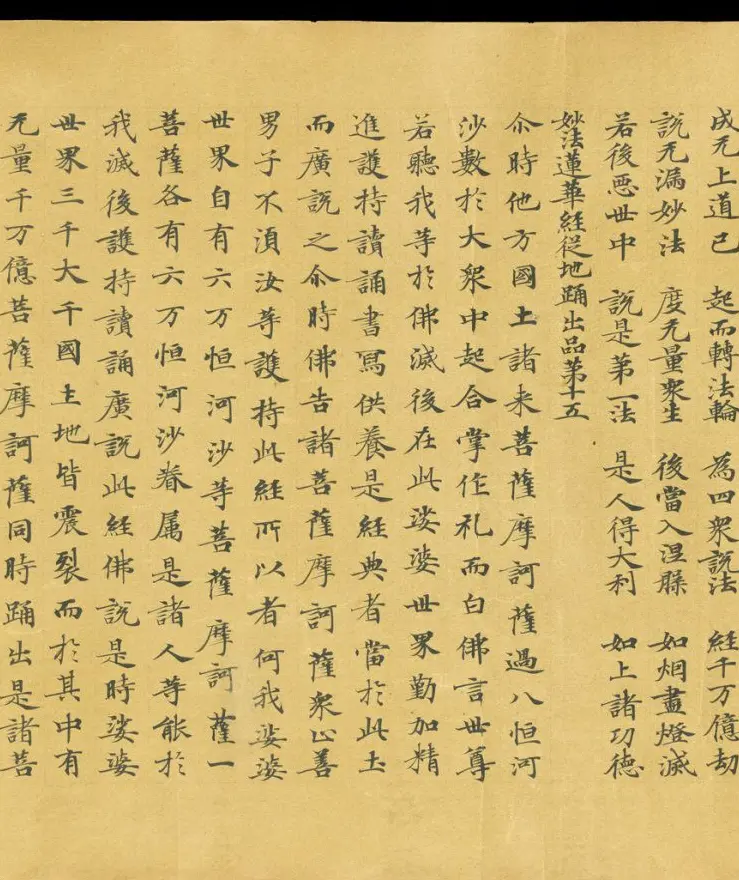 成无上道已 起而轉法輪 為四衆説法 經千万億劫
説无漏妙法 度无量衆生 後當入涅槃 如烟盡燈滅
若後惡世中 説是第一法 是人得大利 如上諸功德
妙法蓮華經從地踊出品第十五
尒時他方國土諸来菩薩摩訶薩過八恒河
沙數於大衆中起合掌作礼而白佛言世尊
若聽我等於佛滅後在此娑婆世界勤加精
進護持讀誦書寫供養是經典者當於此土
而廣説之尒時佛告諸菩薩摩訶薩衆止善
男子不湏汝等護持此經所以者何我娑婆
世界自有六万恒河沙等菩薩摩訶薩一
菩薩各有六万恒河沙眷属是諸人等能於
我滅後護持讀誦廣説此經佛説是時娑婆
世界三千大千國土地皆震裂而於其中有
无量千万億菩薩摩訶薩同時踊出是諸菩